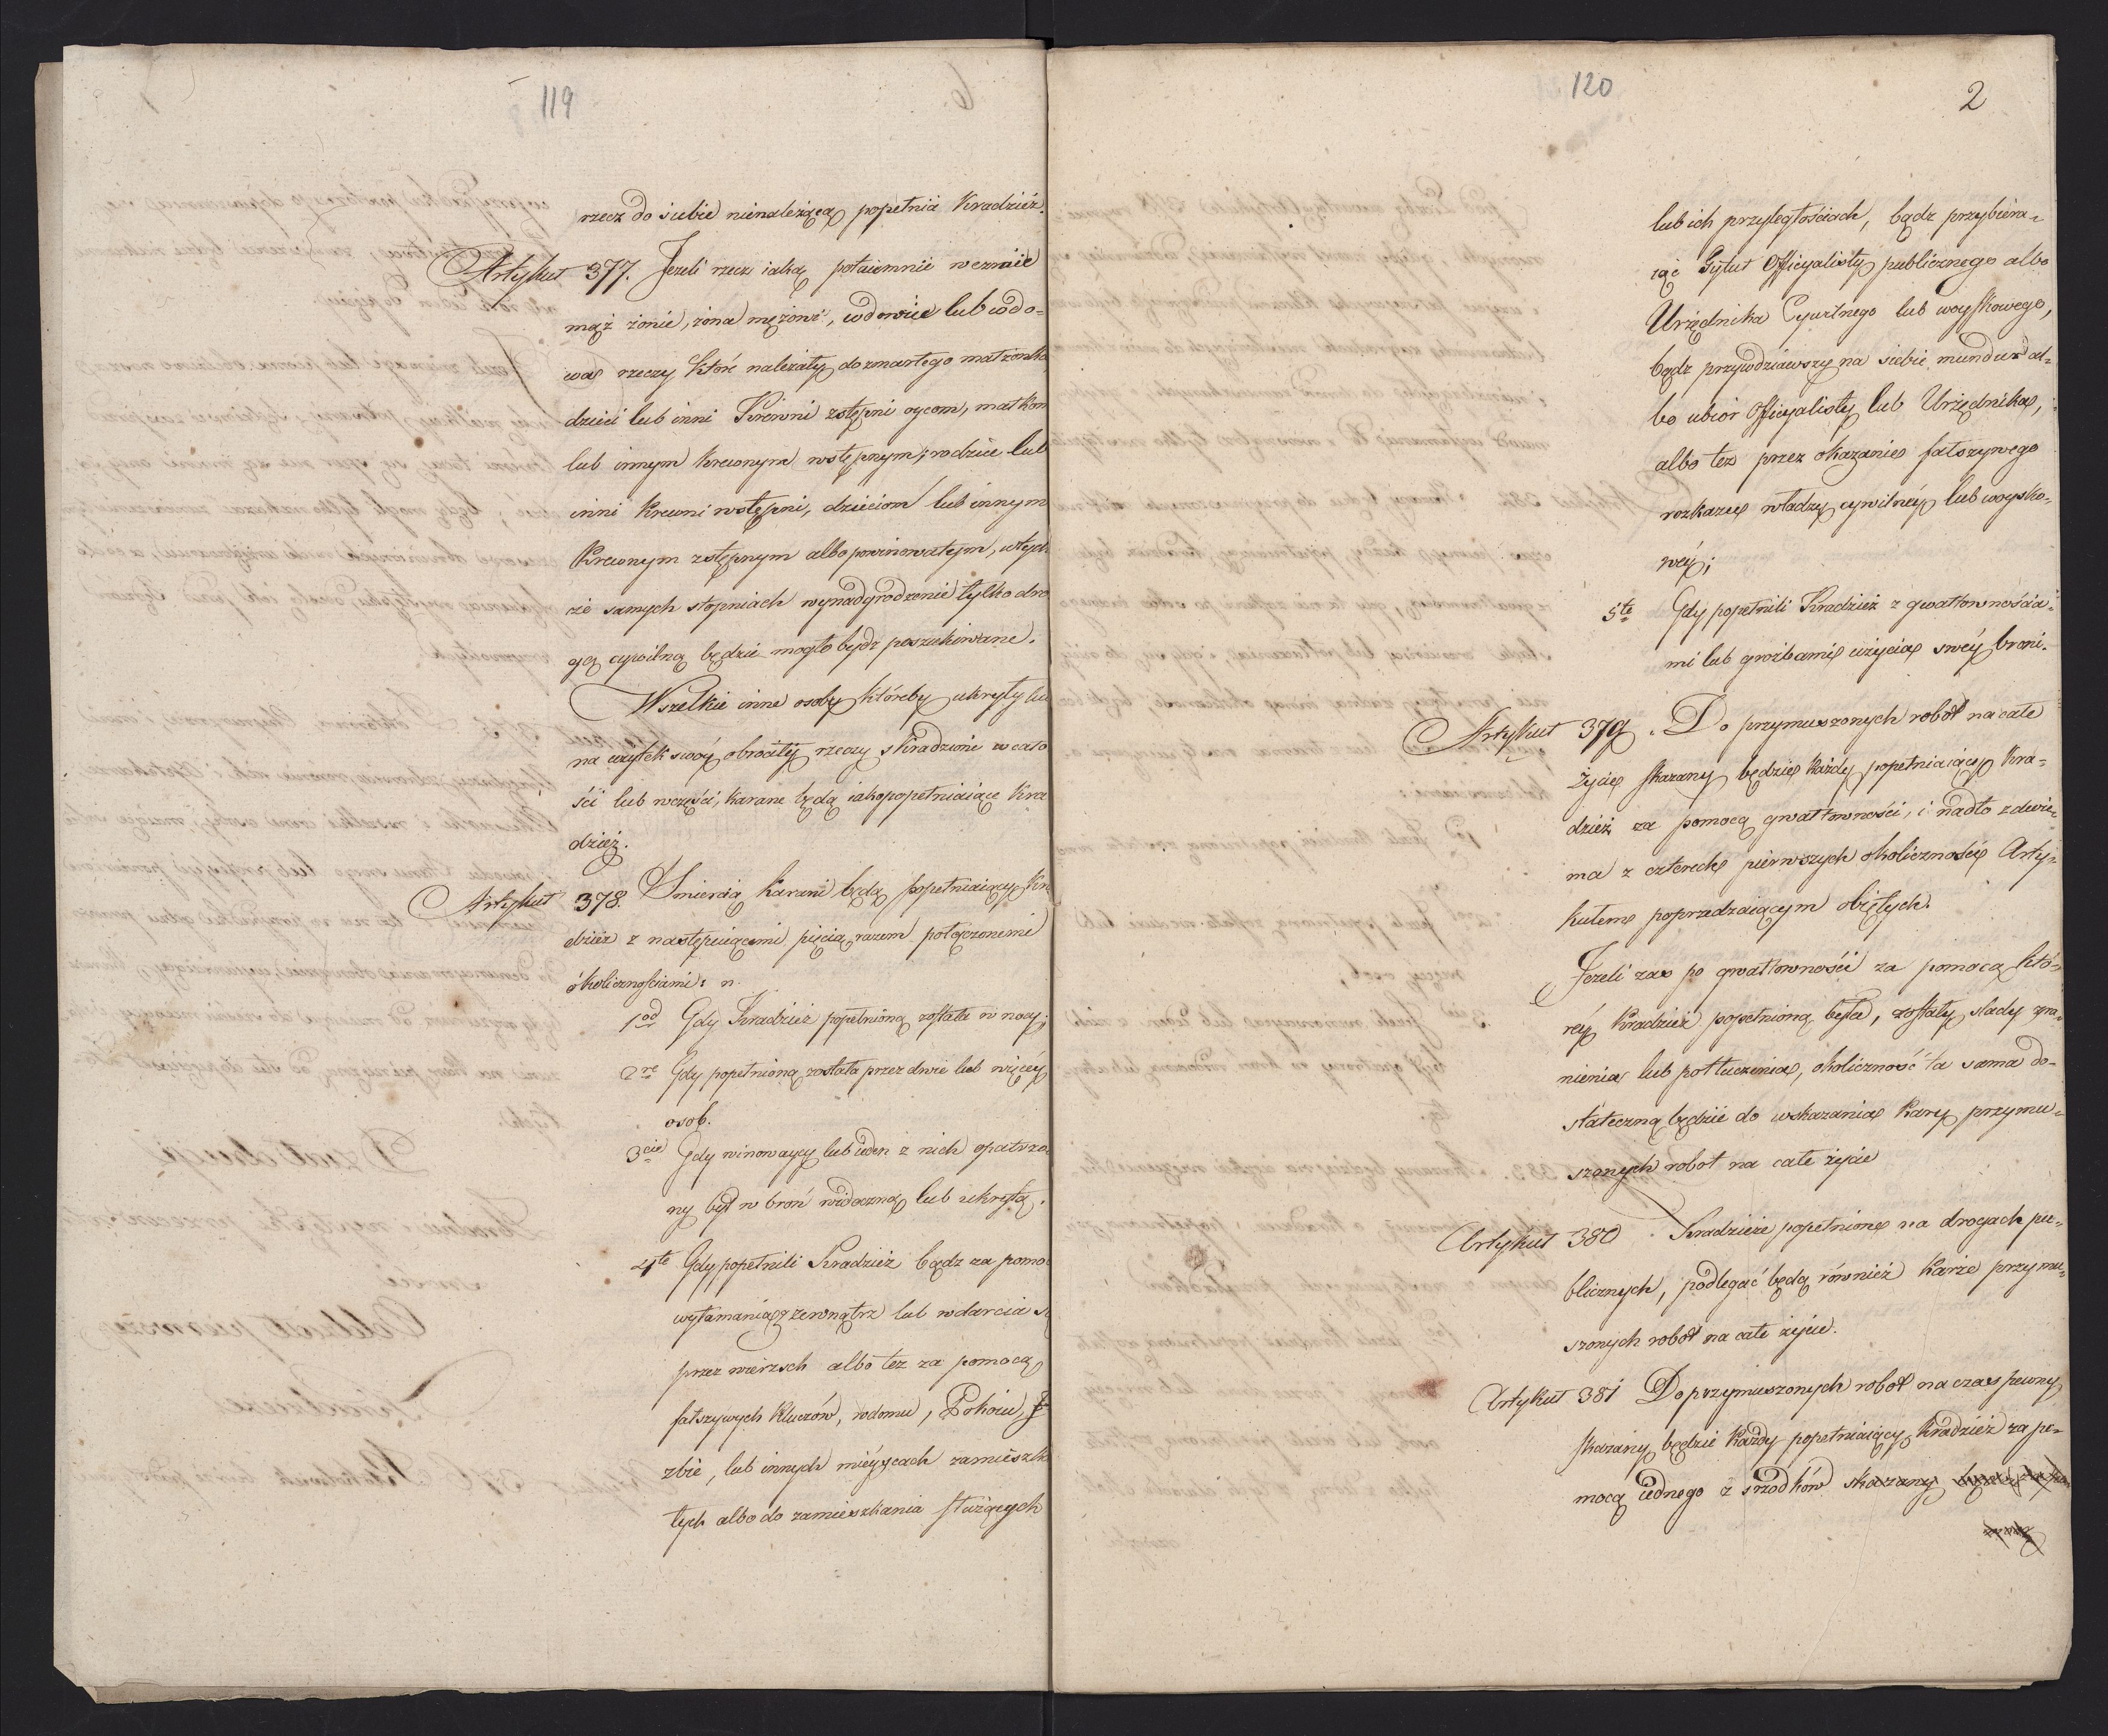 119
rzecz do siebie nienależącą popełnia kradzież.
Artykuł 377. Jeżeli rzecz iaką potaiemnie weźmie
mąż żonie, żona mężowi, wdowiec lub wdo-
wa rzeczy które należały do zmarłego małżonka
dzieci lub inni Krewni zstępni oycom, matkom
lub innym krewnym wstępnym; rodzice lub
inni krewni wstępni, dzieciom lub innym
Krewnym zstępnym albo powinowatym, w tych
że samych stopniach wynadgrodzenie tylko dro
gą cywilną będzie mogło bydź poszukiwane.
Wszelkie inne osoby któreby ukryły lu
na użytek swóy obróciły rzeczy skradzione w cało
ści lub w części, karane będą iako popełniaiące kra
dzież.
Artykuł 378. Smiercią karani będą popełniaiący kra
dzież z następuiącemi pięcią razem połączonemi
okolicznościami:
1od Gdy Kradzież popełnioną została w nocy;
2re Gdy popełnioną została przez dwie lub więcéy
osob.
3cie Gdy winowaycy lub ieden z nich opatrzo
ny był w broń widoczną lub ukrytą.
4te Gdy popełnili Kradzież bądz za pomo
wyłamania zewnątrz lub wdarcia się
przez wierzch albo tez za pomocą
fałszywych kluczów, w domu, Pokoiu, J
zbie, lub innych mieyscach zamieszk
łych albo do zamieszkania służących
120
2
lub ich przyległościach, bądz przybiera-
iąc Tytuł Officyalisty publicznego albo
Urzędnika Cywilnego lub woyskowego,
bądz przywdziawszy na siebie mundur al-
bo ubior Officyalisty lub Urzędnika,
albo tez przez okazanie fałszywego
rozkazu władzy cywilnéy lub woysko-
wéy;
5te Gdy popełnili Kradzież z gwałtownościa-
mi lub groźbami użycia swéy broni.
Artykuł 379. Do przymuszonych robot na całe
życie skazany będzie każdy popełniaiący kra-
dzież za pomocą gwałtowności, i nadto z dwie-
ma z czterech pierwszych okoliczności Arty-
kułem poprzedzaiącym obiętych.
Jeżeli zaś po gwałtowności za pomocą któ-
réy kradzież popełnioną była, zostały slady zra-
nienia lub potłuczenia, okoliczność ta sama do-
stateczną będzie do wskazania kary przymu-
szonych robot na całe życie
Artykuł 380 Kradzieże popełnione na drogach pu-
blicznych, podlegać będą również karze przymu-
szonych robot na całe życie.
Artykuł 381 Do przymuszonych robot na czas pewny
skazany będzie każdy popełniaiący kradzież za po-
mocą iednego z srzodków skazany